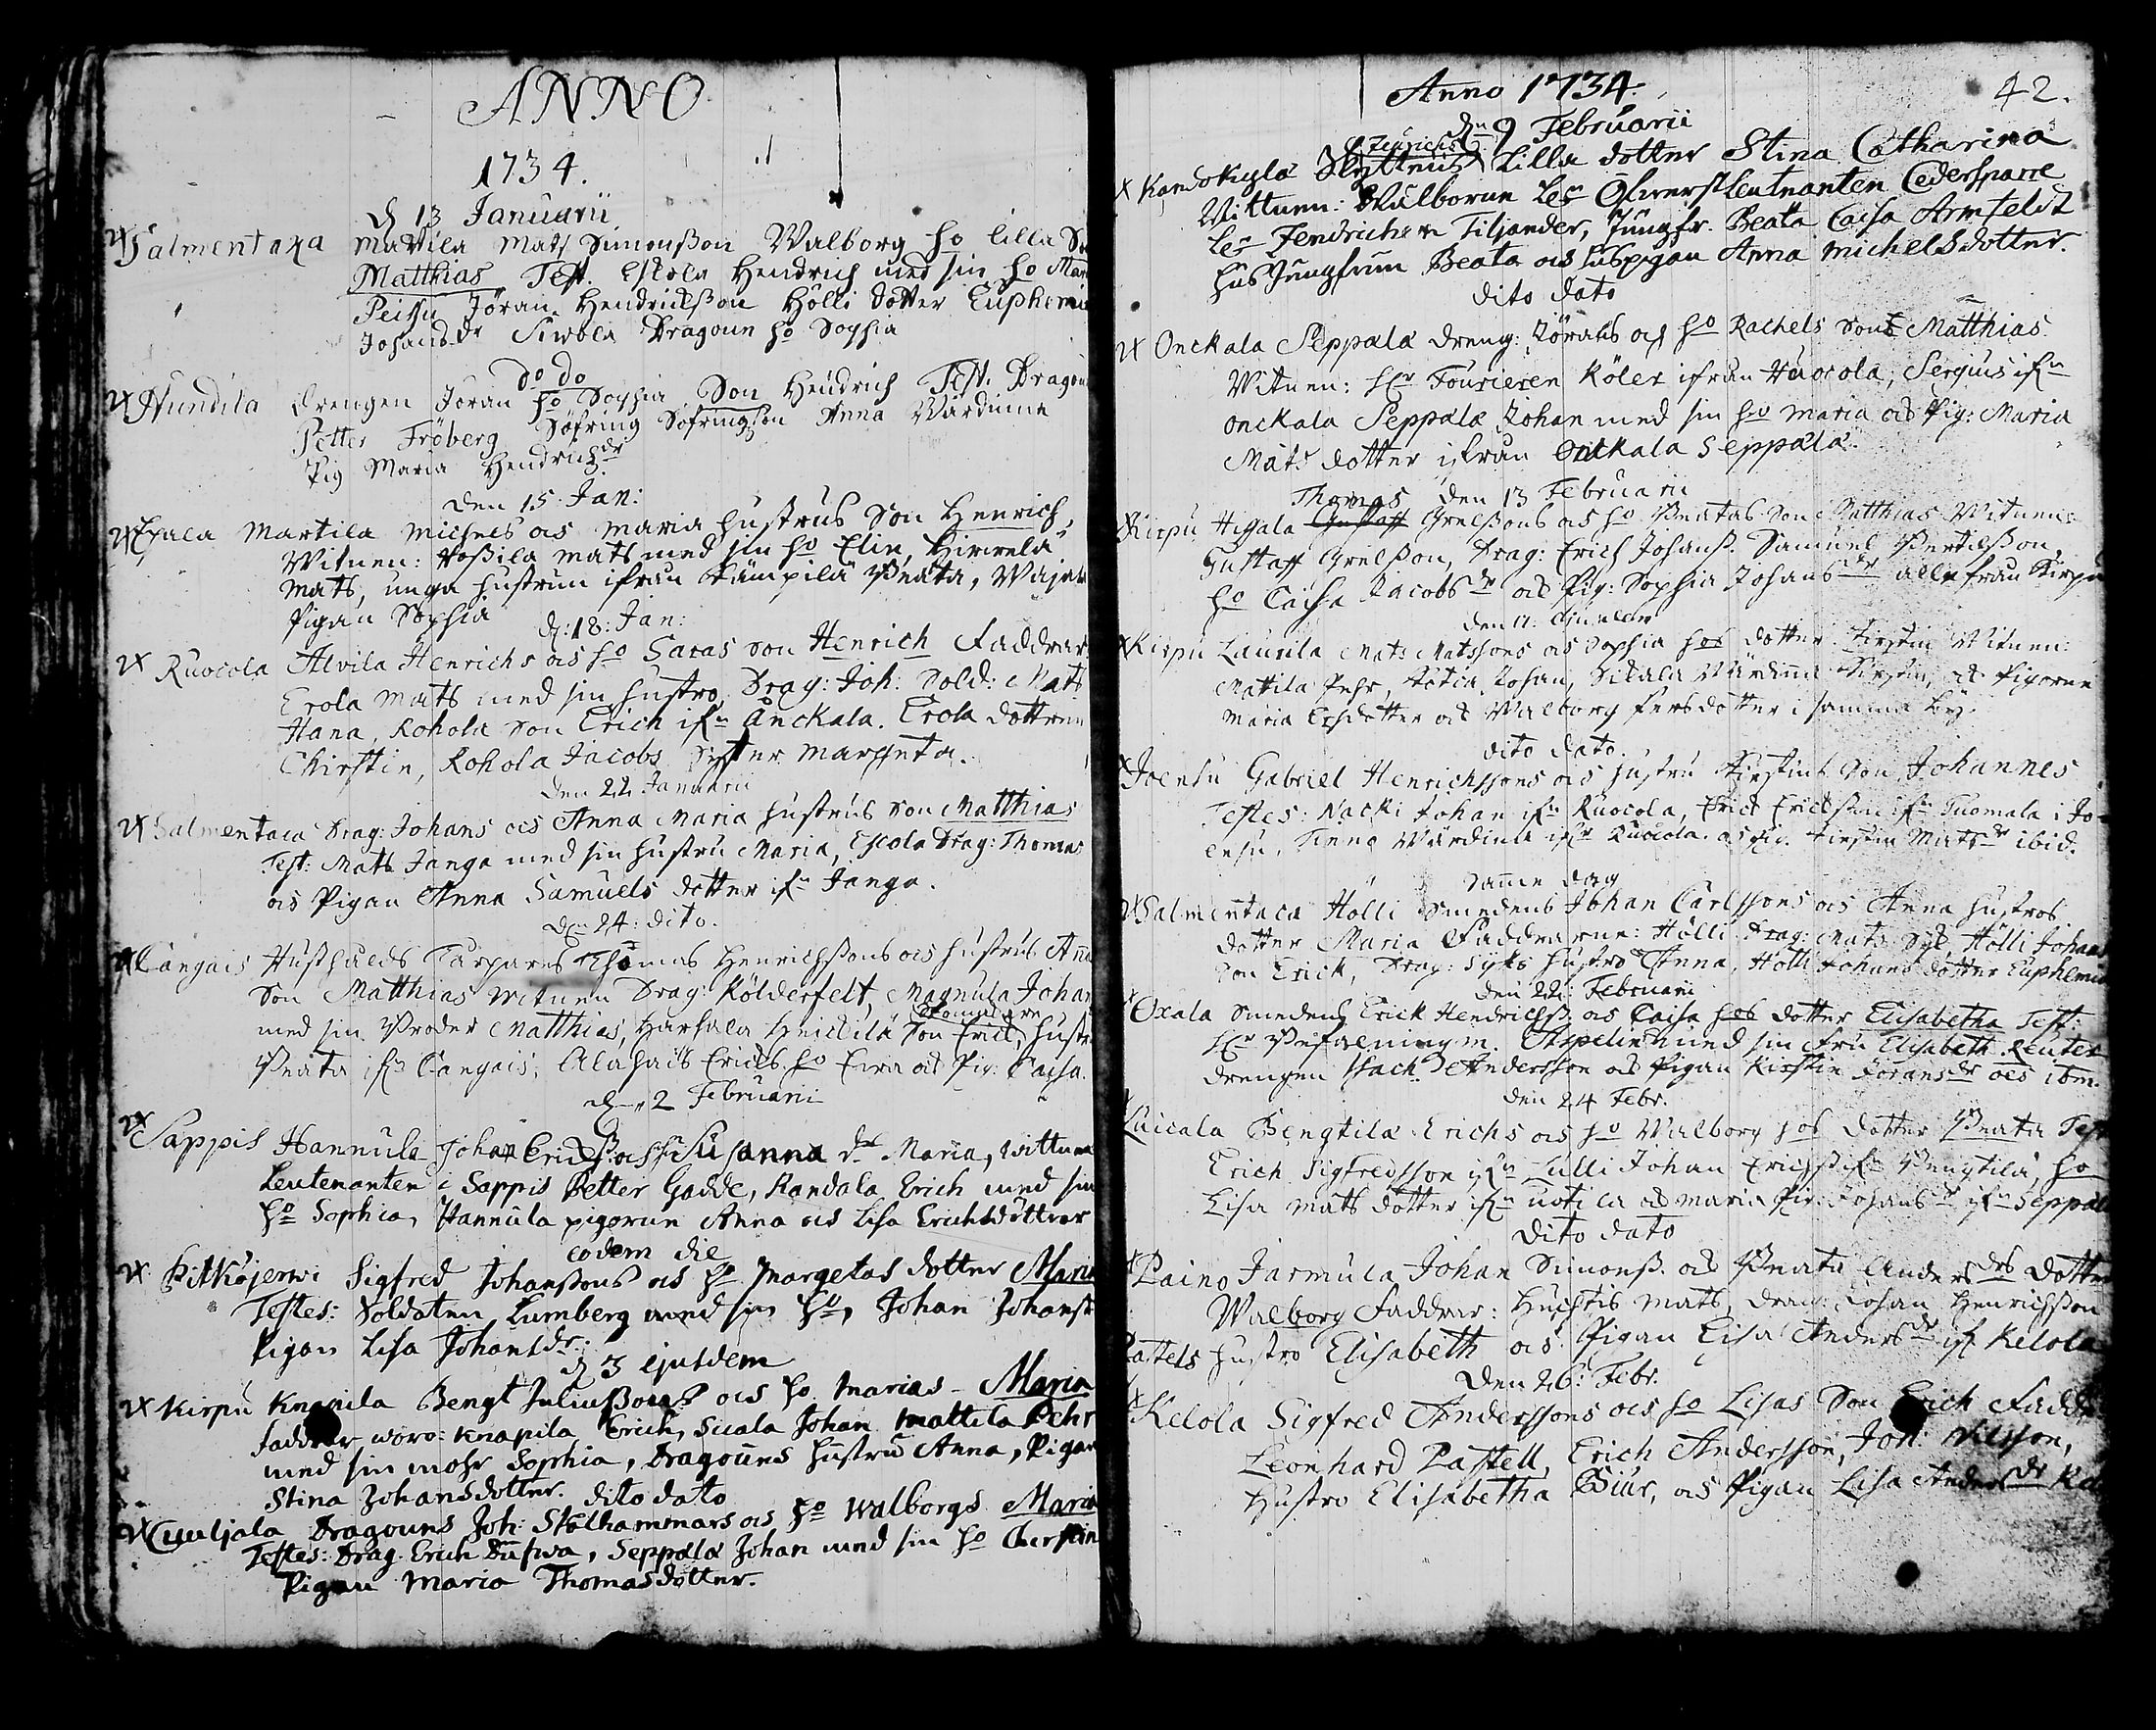 ANNO
1734.
d 13 Januarii
Salmentaka Mattila Mats Simonsson Walborg ho lilla So
Matthias Test. Eskola Hendrich med sin ho Mar
Peissu Jöran Hendricksson Hölli dotter Euphemia
Johans dr Siwola Dragoun ho Sophia
do do
Nundila drengen Jöran ho Sophia Son Hendrich Test. Dragoun
Petter Fröberg Söfring Söfringsson Anna Wärdinna
Pig Maria Hendrichsdr
Den 15 Jan:
Martila Michels os Maria hustrus Son Henrich,
Witnen: Mats med sin ho Elin, Hirvela
Mats, unga hustrun ifrån Kämpilä Beata,
Pigan Sophia
d: 18: Jan:
Ruocola Alvila Henrichs os ho Saras son Henrich Faddrar
Erola Mats med sin hustro, Drag: Joh: Sold: Mats
Hana, Rohola son Erich ifn Anckala. Erola dottren
Chirstin, Rohola Jacobs Syster Margeta.
Den 22 Januarii
Salmentaca Drag: Johans os Anna Maria hustrus son Matthias
Test: Mats Janga med sin hustru Maria, Escola Drag: Thomas
os Pigan Anna Samuels dotter ifn Janga.
Den 24: dito.
Cangais Thomas Henrichssons os hustrus Anna
Son Matthias witnen Drag: Kölderfelt, Magnula Johan
med sin Broder Matthias, Harhala Heickilä son Erick, hustr
Beata ifn Cangais, Alahais Ericks ho Ewa os Pig: Caisa.
d 2 Februarii
Sappis Hannula Johan Ericss os h Susanna dr Maria, wittnen
Leutenanten i Sappis Petter Gadde, Randala Erich med sin
ho Sophia, Hannula pigorne Anna os Lisa Erichsdöttrar
eodem die
Pitkäjerwi Sigfred Johanssons os ho Margetas dotter Maria
Testes: Soldaten Lumberg med sin ho, Johan Johanss
Pigan Lisa Johans dr.
d 3 ejusdem
Kirpu Knapila Bengt Juliussons os ho Marias - Maria
Faddrar woro: Knapila Erich, Sicala Johan Mattila Pehr
med sin mohr Sophia, Dragouns hustru Anna, Pigan
Stina Johansdotter.
dito dato
Cuuljala Dragouns Joh: Stålhammars os ho Walborgs Maria
Testes: Drag. Erich Dufwa, Seppälä Johan med sin ho Cherstin
Pigan Maria Thomasdotter.
Anno 1734.
42.
dn 9 Februarii
Kandokylä Lilla dotter Stina Catharina
Wittnen: Wälborne Her ÖfwerstLeutnanten Cedersparre
Her Fendrichen Tiljander, Jungfr. Beata Caisa Armfeldt
hus Jungfrun Beata os huspigan Anna Michelsdotter.
Dito dato
Onckala Seppälä dreng: Jörans och ho Rachels Son Matthias
Witnen: Hr Fourieren Köler ifrån Huocola, Sergius ifn
Onckala Seppälä Johan med sin ho Maria os Pig: Maria
Mats dotter ifrån Onckala Seppälä.
Den 13 Februarii
Thomas
Kirpu Hegala Gustaff Grelssons os ho Beatas Son Matthias Witnen
Gustaff Grelsson, Drag: Erich Johanss. Samuel Bertilsson
ho Caisa Jacobs dr os Pig: Sophia Johans dr alle från Kirpu
Kirpu Laurila Mats Matssons os Sophia hos dotter Kirstin Witnen:
Mattila Pehr, Johan, Sikala Wärdinna Kirstin, os Pigorne
Maria Erssdotter os Walborg Persdotter i samma by.
dito dato.
Joensu Gabriel Henrichssons os hustru Kirstins Son Johannes
Testes: Nacki Johan ifn Ruocola, Erick Erickson ifn Tuomala i Jo-
ensu, Anna Wärdinna ifn Ruocola. os pig. Kirstin Mats dr ibid.
Samme dag
Salmentaca Hölli Smedens Johan Carlssons os Anna hustros
dotter Maria Faddrarne: Hölli Drag: Mats Syk Hölli Johans
Son Erick, Drag: Syks hustro Anna, Hölli Johans dotter Euphemia
Den 22: Februarii
Oxala Smedens Erick Hendrichss. os Caisa hos dotter Elisabetha Test:
Hr Befalningzm. Arpelin med sin Fru Elisabeth Reuter
drengen Isach Andersson os Pigan Kirstin Jörans dr oes ibm.
Den 24 Febr.
Luicala Bengtilä Erichs os ho Walborg hos dotter Beata Test
Erich Sigfredsson ifn Lulli Johan Erichss ifn Bengtilä, ho
Lisa Mats dotter ifn Uotila os Maria Pig: Johans dr ifn Seppälä
Dito dato
Paino Jarmula Johan Simonss. os Beata Anders drs dotter
Walborg Faddrar: Huchtis Mats, dreng: Johan Henrichsson
Pastels hustro Elisabeth os Pigan Lisa Anders dr ifn Kelola
Den 26: Febr.
Kelola Sigfred Anderssons os ho Lisas Son Erich Fadd
Leonhard Pastell, Erich Andersson, Joh: Nilsson,
Hustro Elisabetha Biur, os Pigan Lisa Anders dr Kel